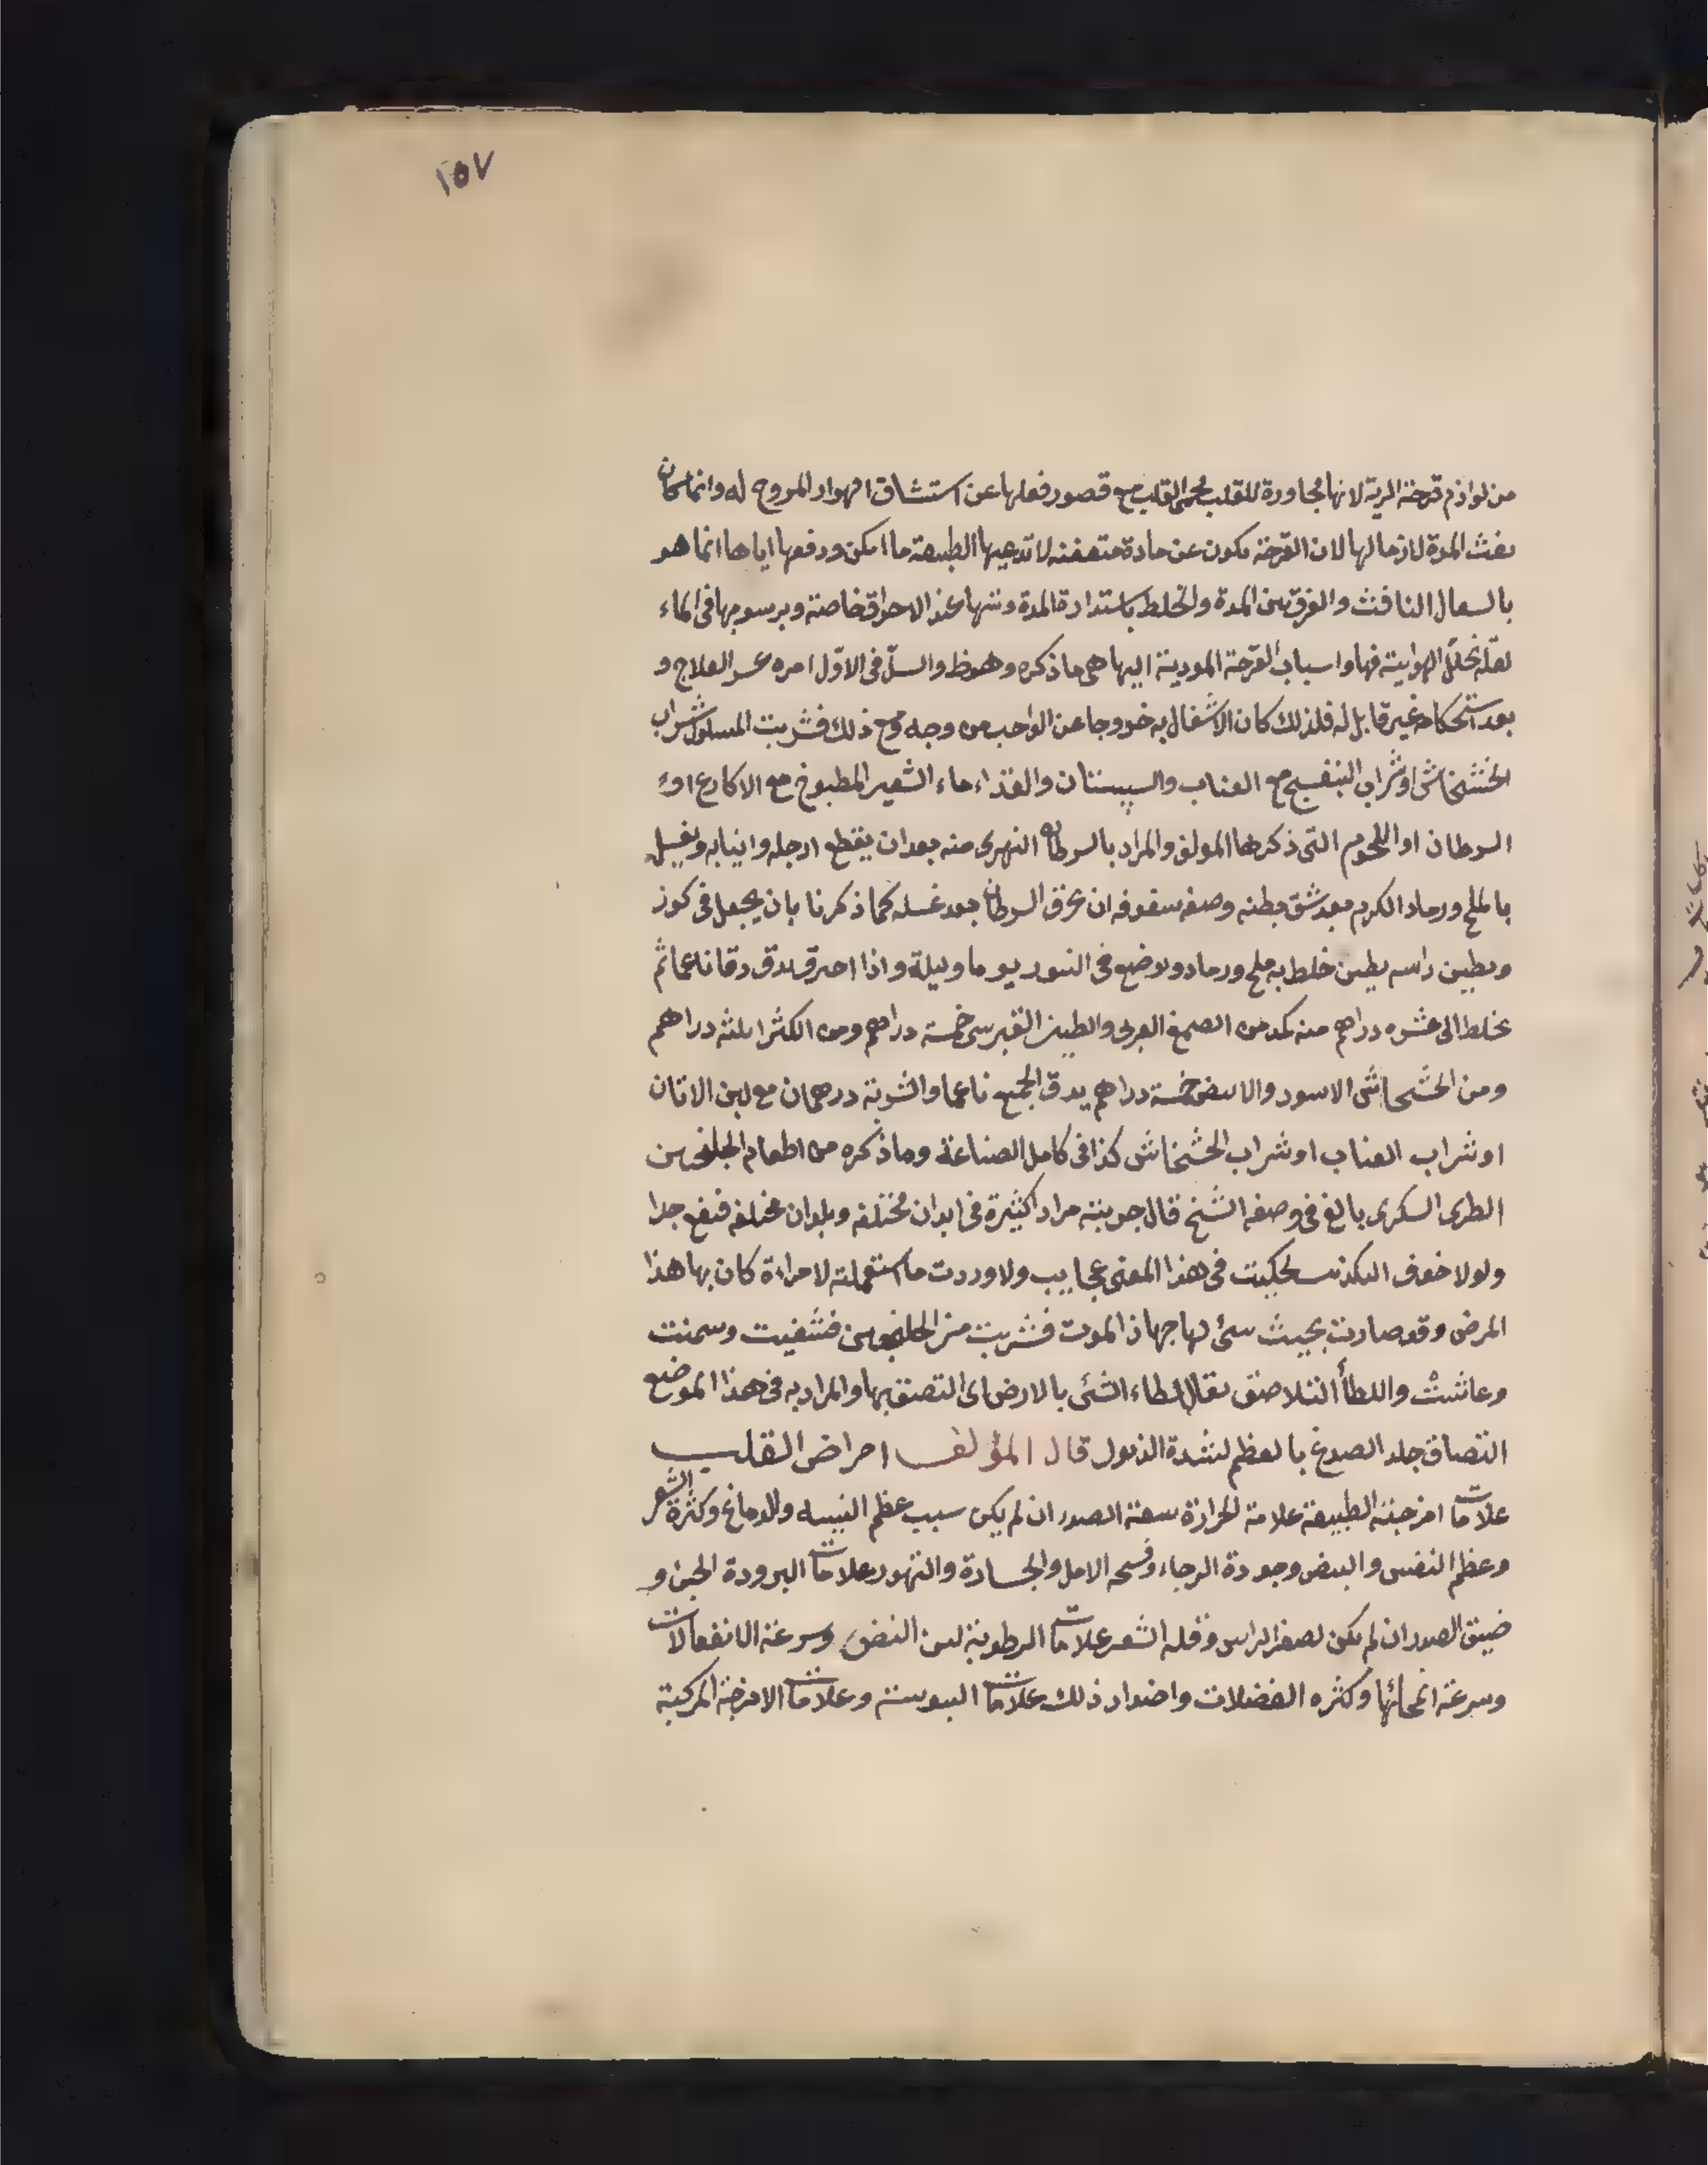 ١٥٧
من لوازم قرحة الرية لانها مجاورة للقلب محمى القلب مع قصور فعلها عن استنشاق الهواء المروح له وانما كان
نفث المدة لازما لها لان القرحة يكون عن مادة متعفنه لا تدعيها الطبيعة ما امكن ودفعها اياها انما هو
بالسعال النافث والفرق بين المدة والخلط باستدارة المدة ونتنها عند الاحراق خاصة وبرسوبها فى الماء
لقلة تخلل الهوايية فيها واسباب القرحة المودية اليها هى ما ذكره وهوظ والسلّ فى الاوّل امره عسر العلاج و
بعد استحكامه غير قابل له فلذلك كان الاشغال به خروجا عن الواجب من وجه ومع ذلك فشربت المسلول شراب
الخشخاش او شراب البنفسج مع العناب والسپستان والغذاء ماء الشعير المطبوخ مع الاكارع او
السرطان او اللحوم التى ذكرها المولف والمراد بالسرطان النهرى منه بعد ان يقطع ارجله وانيابه ويغسل
بالملح ورماد الكرم بعد شق بطنه وصفه سفوفه ان يحرق السرطان بعد غسله كما ذكرنا بان يجعل فى كوز
ويطين راسه بطين خلط به ملح ورماد ويوضع فى التنور يوما وليلة واذا احترق يدق دقا ناعما ثم
يخلط الى عشره دراهم منه كد من الصمغ العربى والطين القبرسى خمسة دراهم ومن الكثيرا ثلثه دراهم
ومن الخشخاش الاسود والابيض خمسة دراهم يدق الجميع ناعما والشربة درهمان مع لبن الاتان
او شراب العناب او شراب الخشخاش كذا فى كامل الصناعة وما ذكره من اطعام الجلنجبين
الطرى السكرى بالغ فى وصفه الشيخ قال جربته مرارا كثيرة فى ابدان مختلفه وبلدان مختلفه فنفع جدا
ولولا خوف التكذيب لحكيت فى هذا المعنى عجايب ولاوردت ما استعملته لامراءة كان بها هذا
المرض وقد صارت بحيث سئ لها جهاز الموت فشربت من الجلنجبين فشفيت وسمنت
وعاشت واللطأ التلاصق يقال لطاء الشئ بالارض اى التصق بها والمراد به فى هذا الموضع
التصاق جلد الصدغ بالعظم لشدة الذبول قال المؤلف امراض القلب
علامات امزجته الطبيعة علامة الحرارة سعة الصدر ان لم يكن سبب عظم البنيه والدماغ وكثرة الشعر
وعظم النفس والنبض وجودة الرجاء وفسحه الامل والجسارة والتهور علامات البرودة الجبن و
ضيق الصدر ان لم يكن لصغر الراس وقله الشعر علامات الرطوبة لين النبض وسرعة الانفعالات
وسرعة انمحائها وكثره الفضلات واضداد ذلك علامات اليبوسة وعلامات الامزجة المركبة